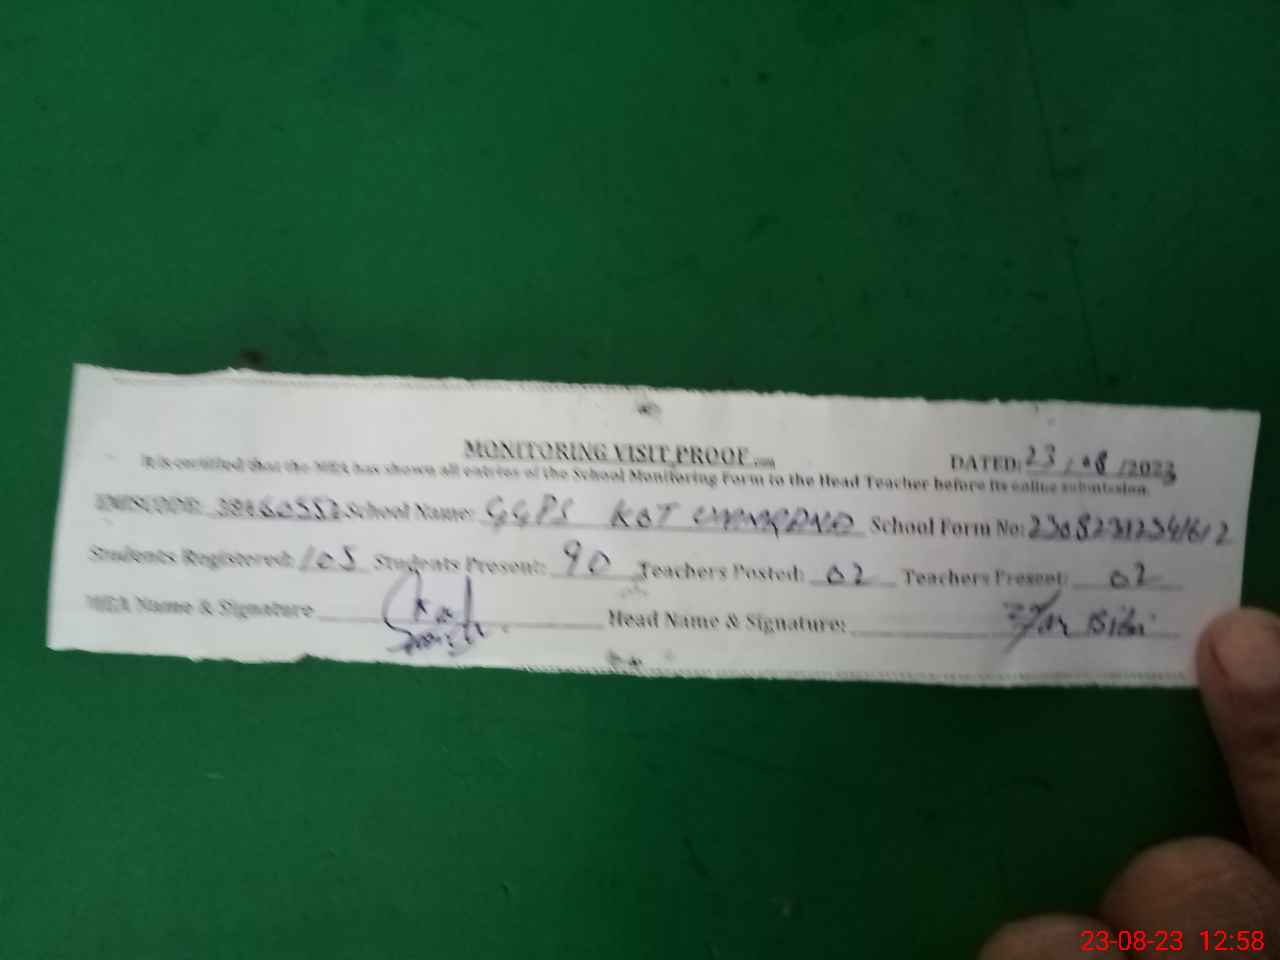 MONITORING VISIT PROOF
DATED: 23/08/2023
It is certified that the MEA has shown all entries of the School Monitoring Form to the Head Teacher before its online submission.
EMISCODE: School Name: GGPS KOT School Form No:
Students Registered: 105 Students Present: 90 Teachers Posted: 02 Teachers Present: 02
MEA Name & Signature Head Name & Signature: Bibi
23-08-23 12:58